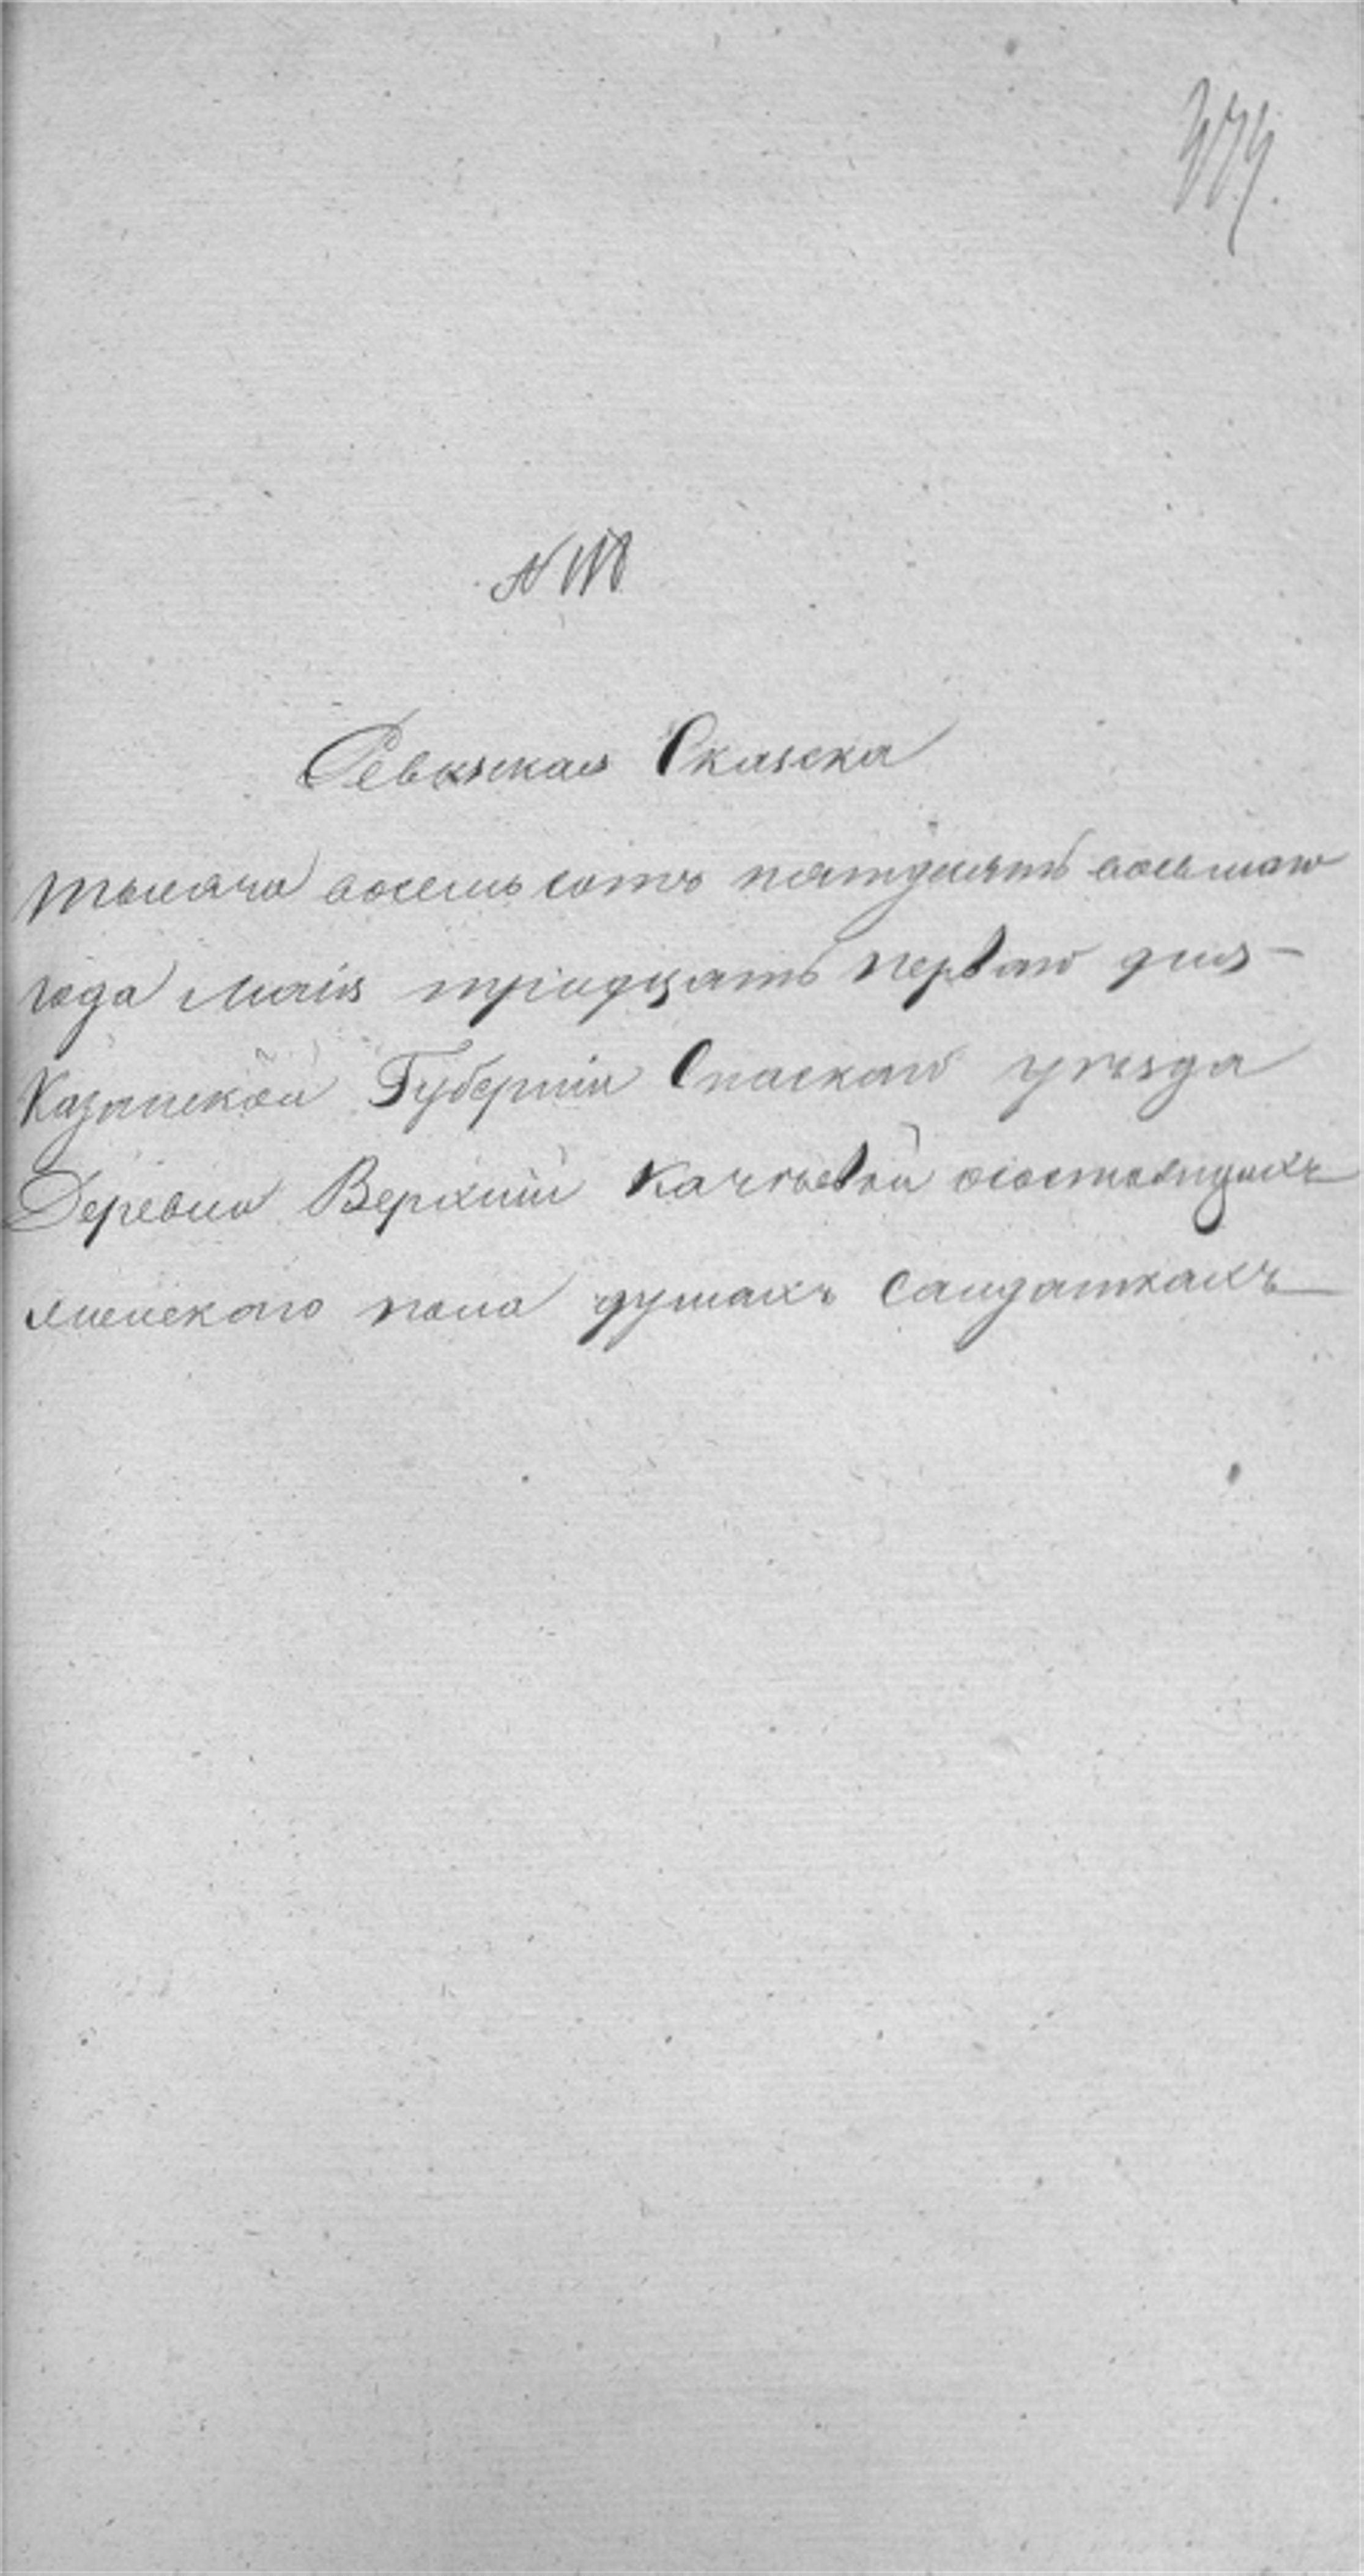 Ревизская Сказска
тысяча восемь сотъ пятдесятъ восьмаго
года Маія тридцать перваго дня —
Казанской Губерніи Спаскаго уѣзда
Деревни Верхний Качѣевой осостоящихъ
женскаго пола душахъ Салдаткахъ